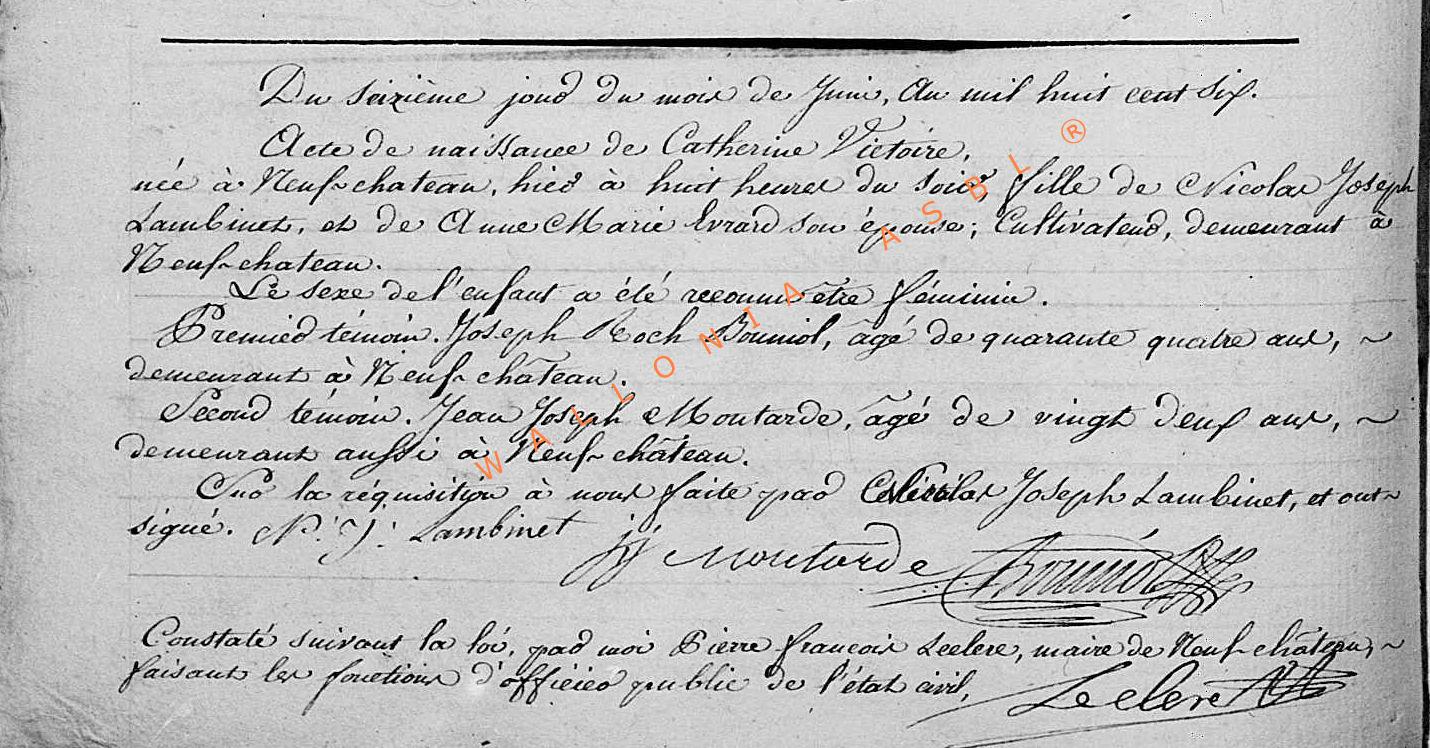 Du seizième jour du mois de Juin, An mil huit cent six.
Acte de naissance de Catherine Victoire,
née à Neuf-chateau, hier à huit heures du soir, fille de Nicolas Joseph
Lambinet, et de Anne Marie Evrard son épouse; Cultivateur, demeurant à
Neuf-chateau.
Le sexe de l'enfant a été reconnu être féminin.
Premier témoin. Joseph Roch Boumiol, âgé de quarante quatre ans, ~
demeurant à Neuf-château.
Second témoin. Jean Joseph Moutarde, âgé de vingt deux ans, ~
demeurant aussi à Neuf-château.
Sur la réquisition à nous faite par Nicolas Joseph Lambinet, et ont
signé. N: J: Lambinet
jj moutarde Boumiol
Constaté suivant la loi, par moi Pierre françois Leclerc, maire de Neuf-château, ~
faisant les fonctions d'officier public de l'état civil,
Leclerc
WALLONIA ASBL ®